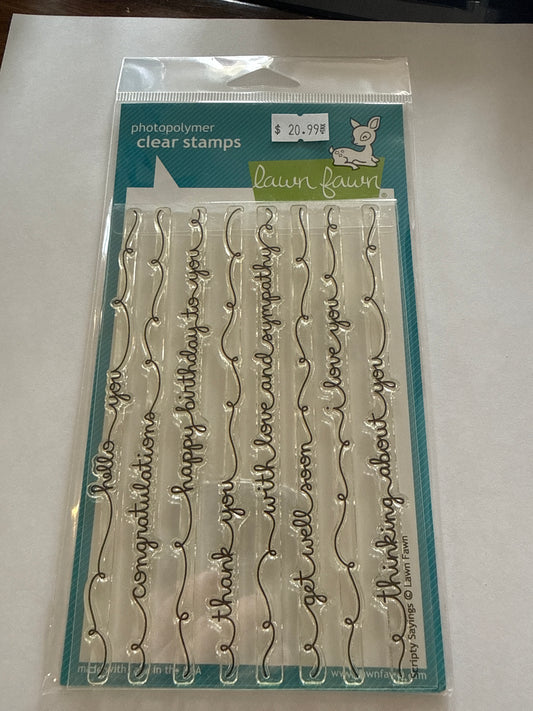 photopolymer
clear stamps
$ 20.99
lawn fawn
hello you
congratulations
happy birthday to you
thank you
with love and sympathy
get well soon
i love you
thinking about you
Scripty Sayings © Lawn Fawn
made with in the USA
www.lawnfawn.com